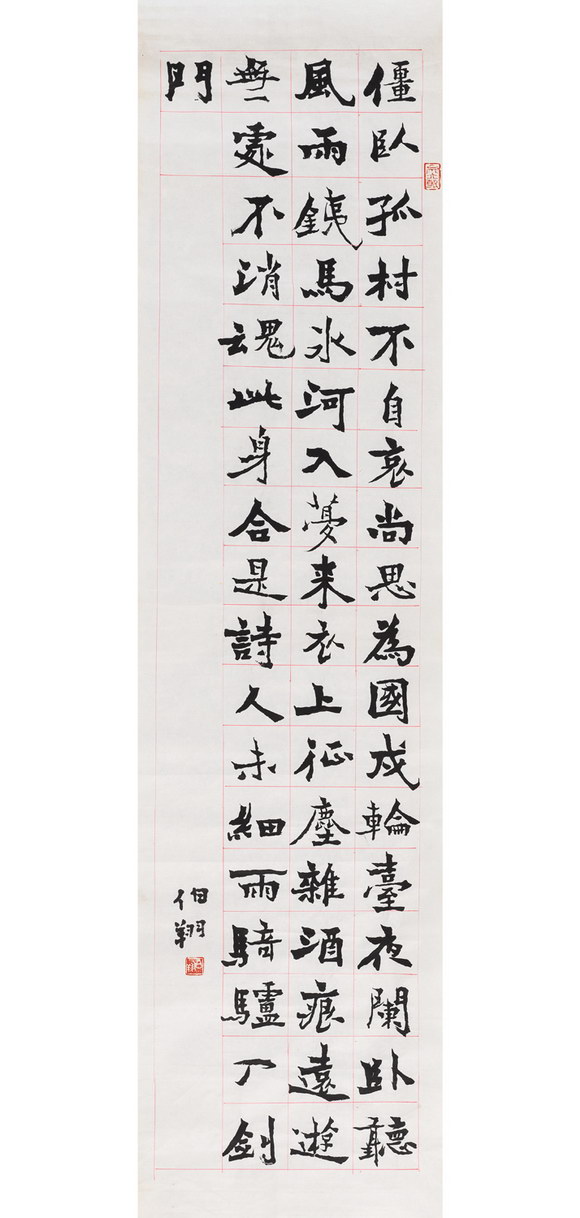 僵臥孤村不自哀尚思為國戍輪臺夜闌卧聽
風雨銕馬氷河入夢来衣上征塵雜酒痕遠遊
無處不消魂此身合是詩人未細雨騎驢入劍
門
伯翔